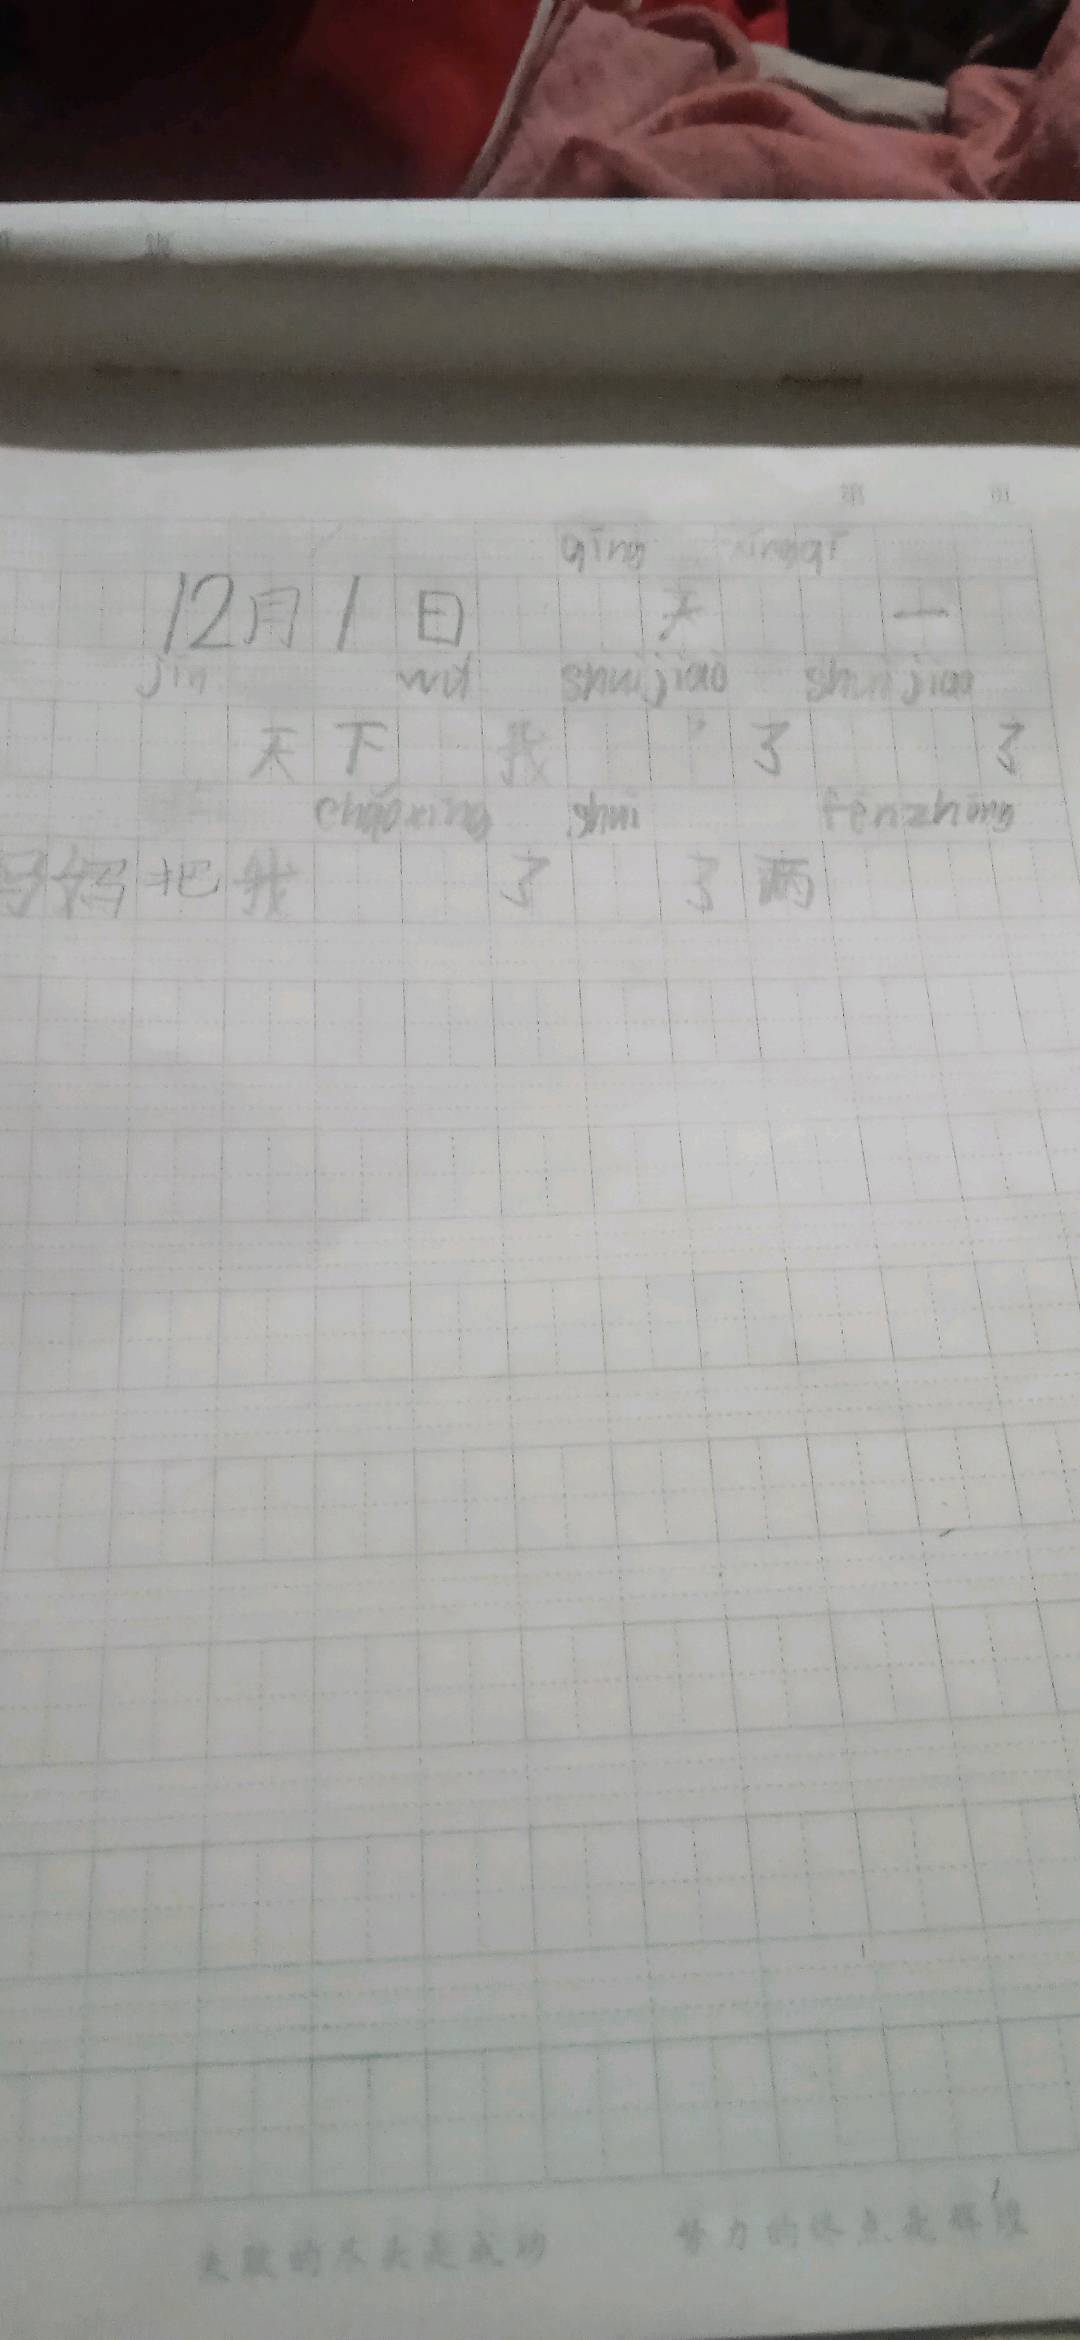 第 页
qíng xīngqī
12月1日 天 一
jīn wǔ shuìjiào shuìjiào
天下 我 了 了
chǎoxǐng shuì fēnzhōng
妈妈把我 了 了两
失败的尽头是成功 努力的终点是辉煌